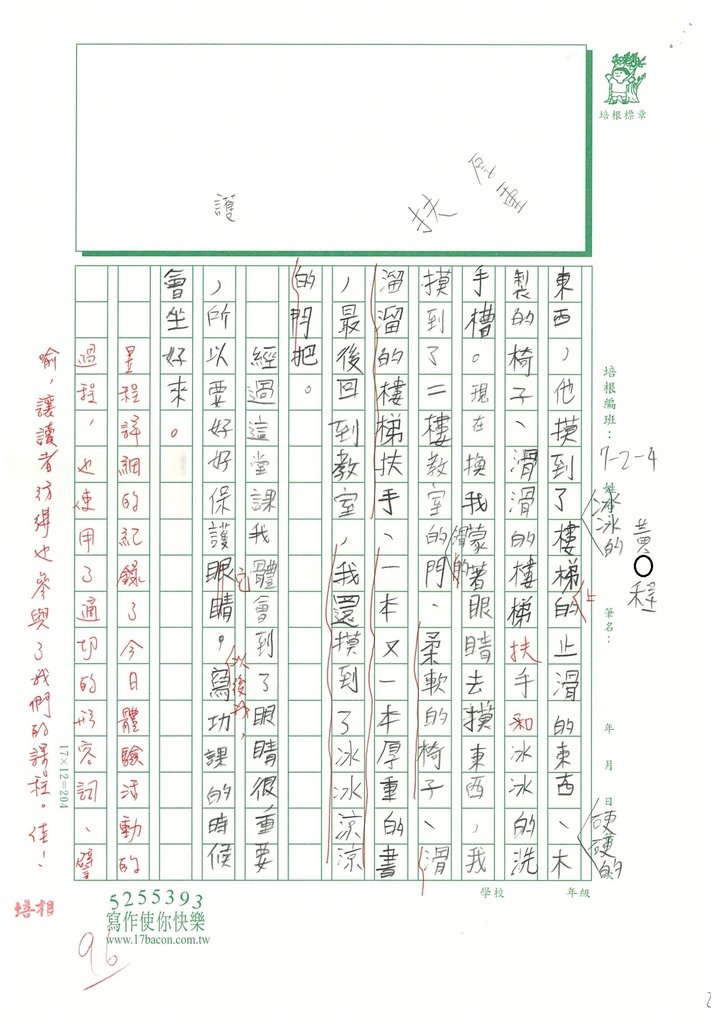 培根標章
培根編班：7-2-4
姓名：黃 程
筆名：
年 月 日
學校 年級
護
扶
東西，他摸到了樓梯的止滑的東西、木
冰冰的
上
硬硬的
製的椅子、滑滑的樓梯扶手和冰冰的洗
手槽。現在換我蒙著眼睛去摸東西，我
滑的
摸到了二樓教室的門、柔軟的椅子、滑
溜溜的樓梯扶手、一本又一本厚重的書
，最後回到教室，我還摸到了冰冰涼涼
的門把。
經過這堂課我體會到了眼睛很重要
，所以要好好保護眼睛。寫功課的時候
它
以後我，
會坐好來。
昱程詳細的紀錄了今日體驗活動的
過程，也使用了適切的形容詞、譬
喻，讓讀者彷彿也參與了我們的課程。佳！
培根
96
17×12=204
5255393
寫作使你快樂
www.17bacon.com.tw